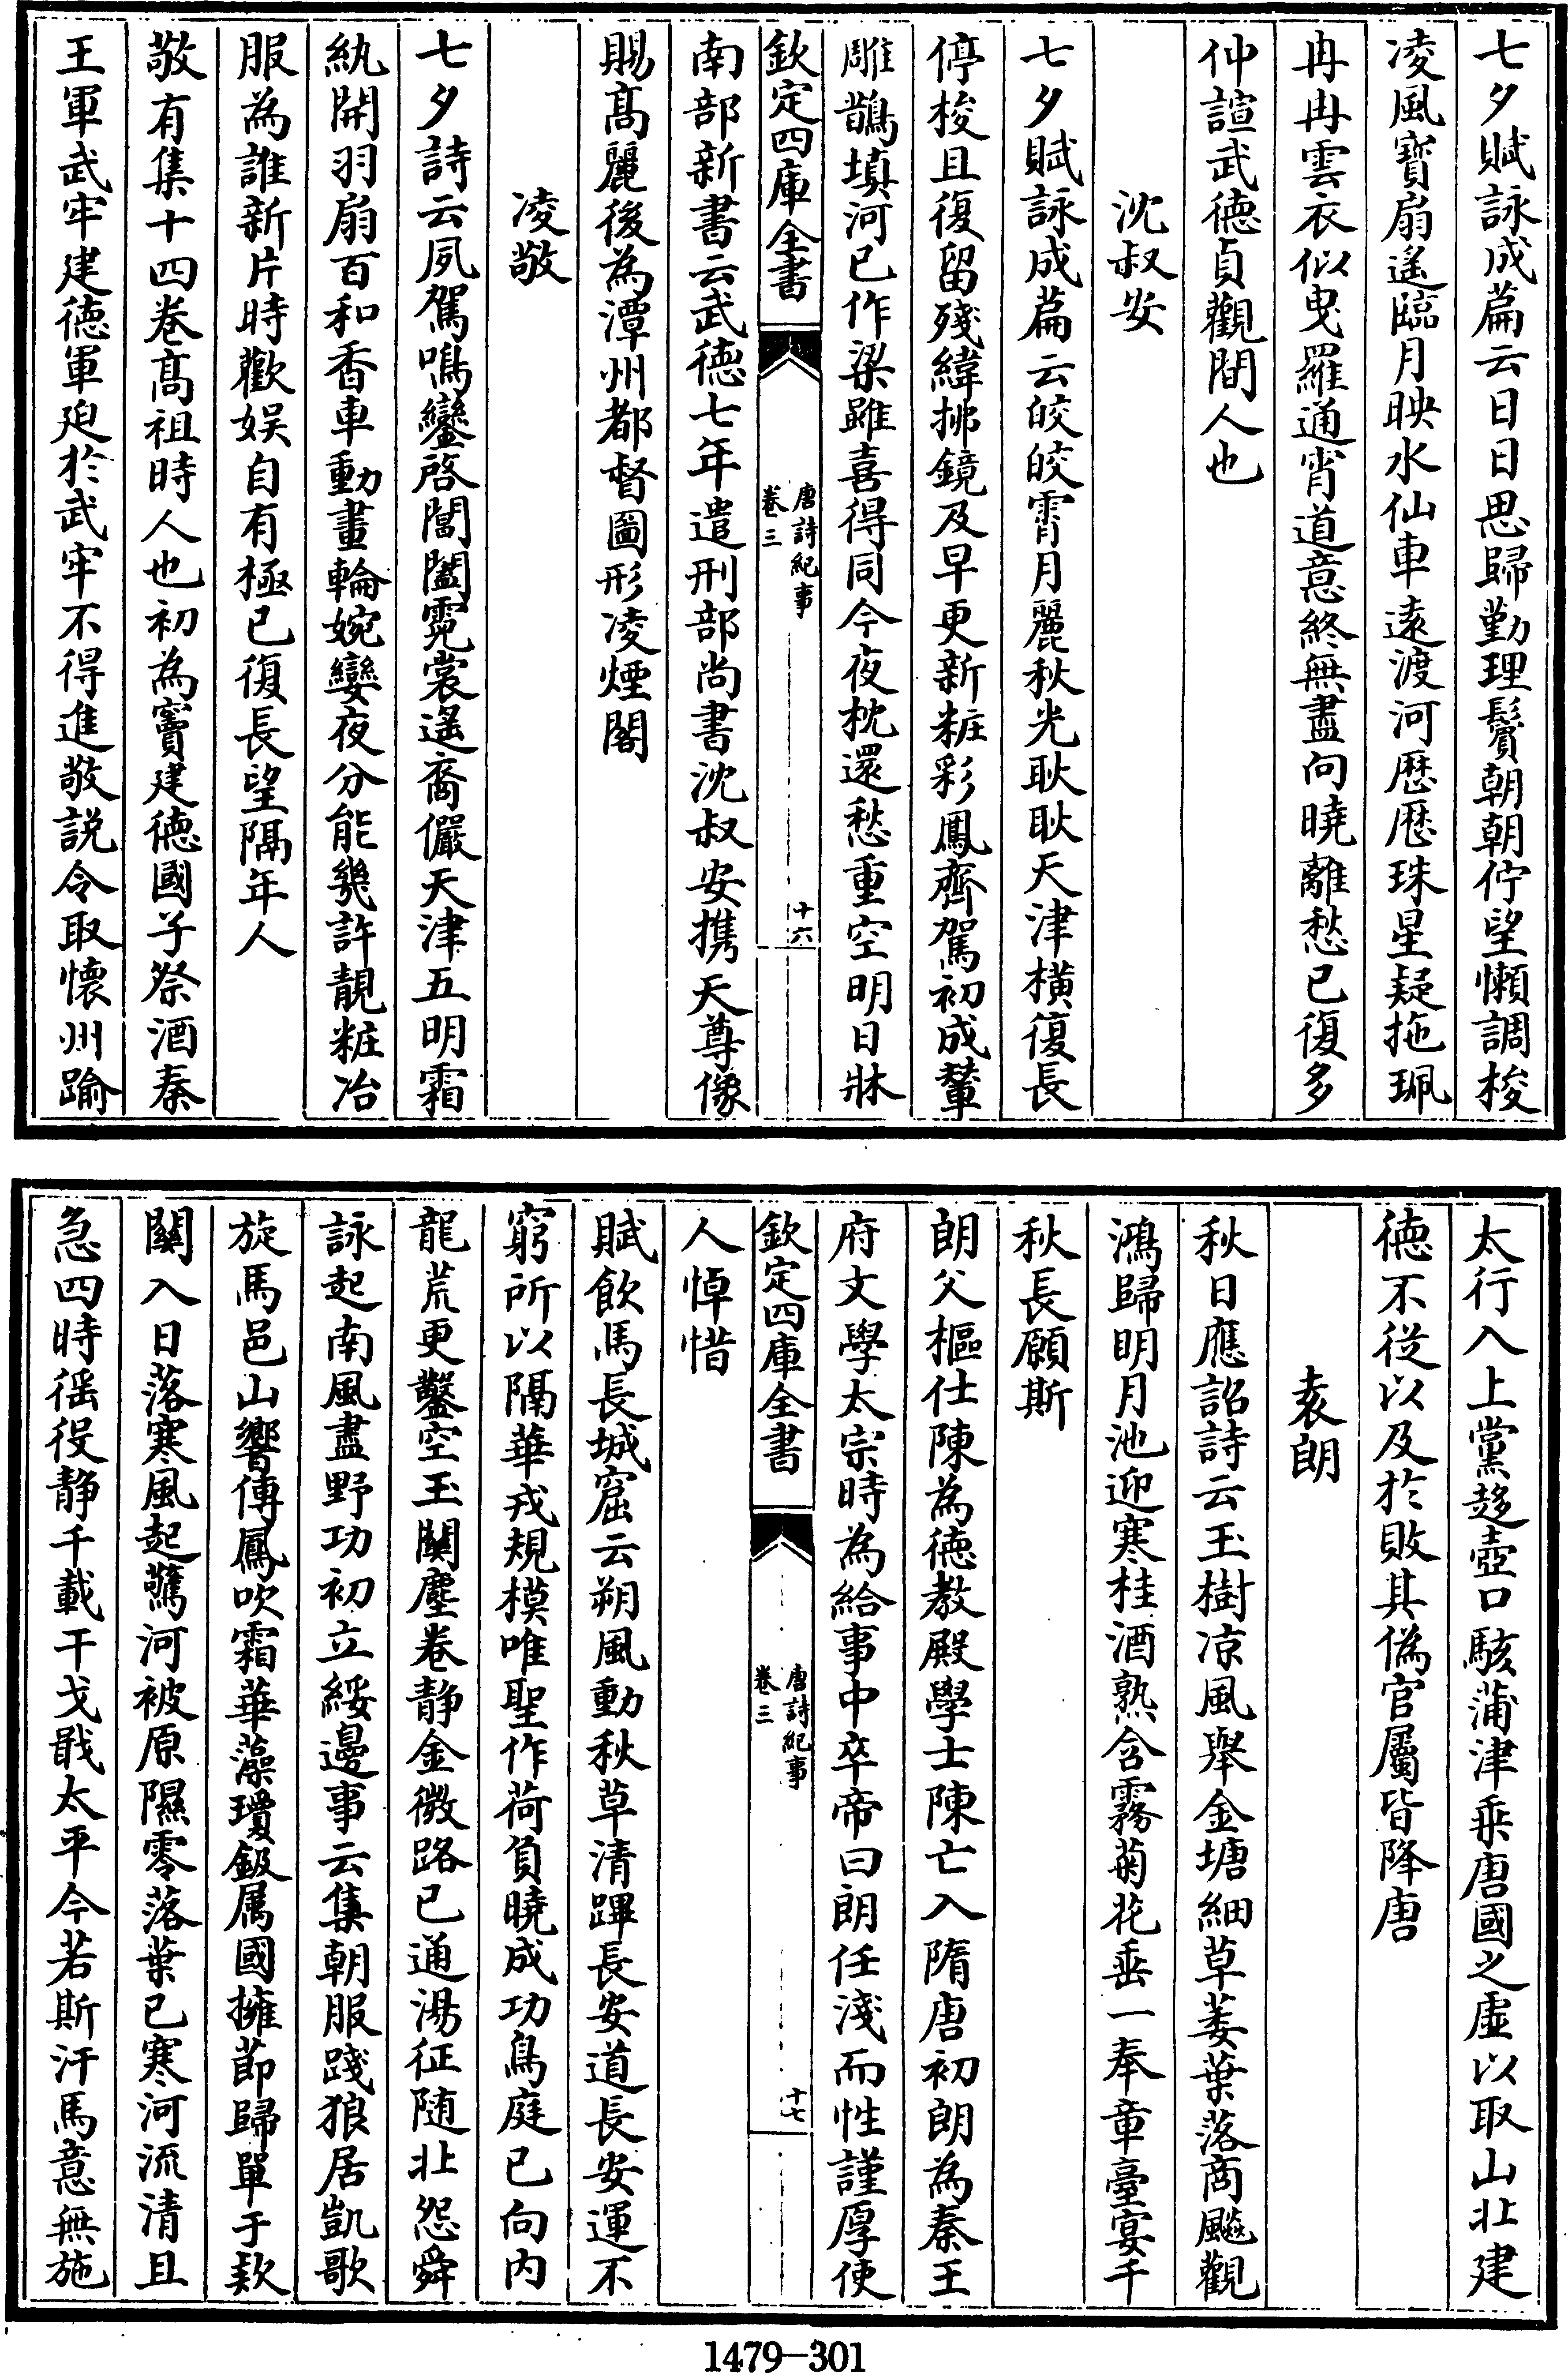 七夕賦詠成篇云日日思歸勤理鬢朝朝佇望懶調梭
凌風寳扇遙臨月映水仙車遠渡河歴歴珠星疑拖珮
冉冉雲衣似曳羅通宵道意終無盡向曉離愁已復多
仲諠武徳貞觀間人也
沈叔安
七夕賦詠成篇云皎皎霄月麗秋光耿耿天津橫復長
停梭且復留殘緯拂鏡及早更新粧彩鳳齊駕初成輦
雕鵲填河已作梁雖喜得同今夜枕還愁重空明日牀
欽定四庫全書
唐詩紀事
卷三
十六
南部新書云武徳七年遣刑部尚書沈叔安攜天尊像
賜髙麗後為潭州都督圖形凌煙閣
凌敬
七夕詩云夙駕鳴鑾啓閶闔霓裳遙裔儼天津五明霜
紈開羽扇百和香車動畫輪婉孌夜分能幾許靚粧冶
服為誰新片時歡娯自有極已復長望隔年人
敬有集十四卷髙祖時人也初為竇建徳國子祭酒秦
王軍武牢建徳軍廹於武牢不得進敬説令取懐州踰
太行入上黨趍壺口駭蒲津乗唐國之虛以取山北建
徳不從以及於敗其偽官屬皆降唐
袁朗
秋日應詔詩云玉樹凉風舉金塘細草萎葉落商飈觀
鴻歸明月池迎寒桂酒熟含霧菊花垂一奉章臺宴千
秋長願斯
朗父樞仕陳為徳教殿學士陳亡入隋唐初朗為秦王
府文學太宗時為給事中卒帝曰朗任淺而性謹厚使
欽定四庫全書
唐詩紀事
卷三
十七
人悼惜
賦飲馬長城窟云朔風動秋草清蹕長安道長安運不
窮所以隔華戎規模唯聖作荷負曉成功鳥庭已向内
龍荒更鑿空玉關塵卷静金微路已通湯征隨北怨舜
詠起南風畫野功初立綏邊事云集朝服踐狼居凱歌
旋馬邑山響傳鳳吹霜華藻瓊鈒属國擁節歸單于欵
關入日落寒風起驚河被原隰零落葉已寒河流清且
急四時徭役静千載干戈戢太平今若斯汗馬意無施
1479-301